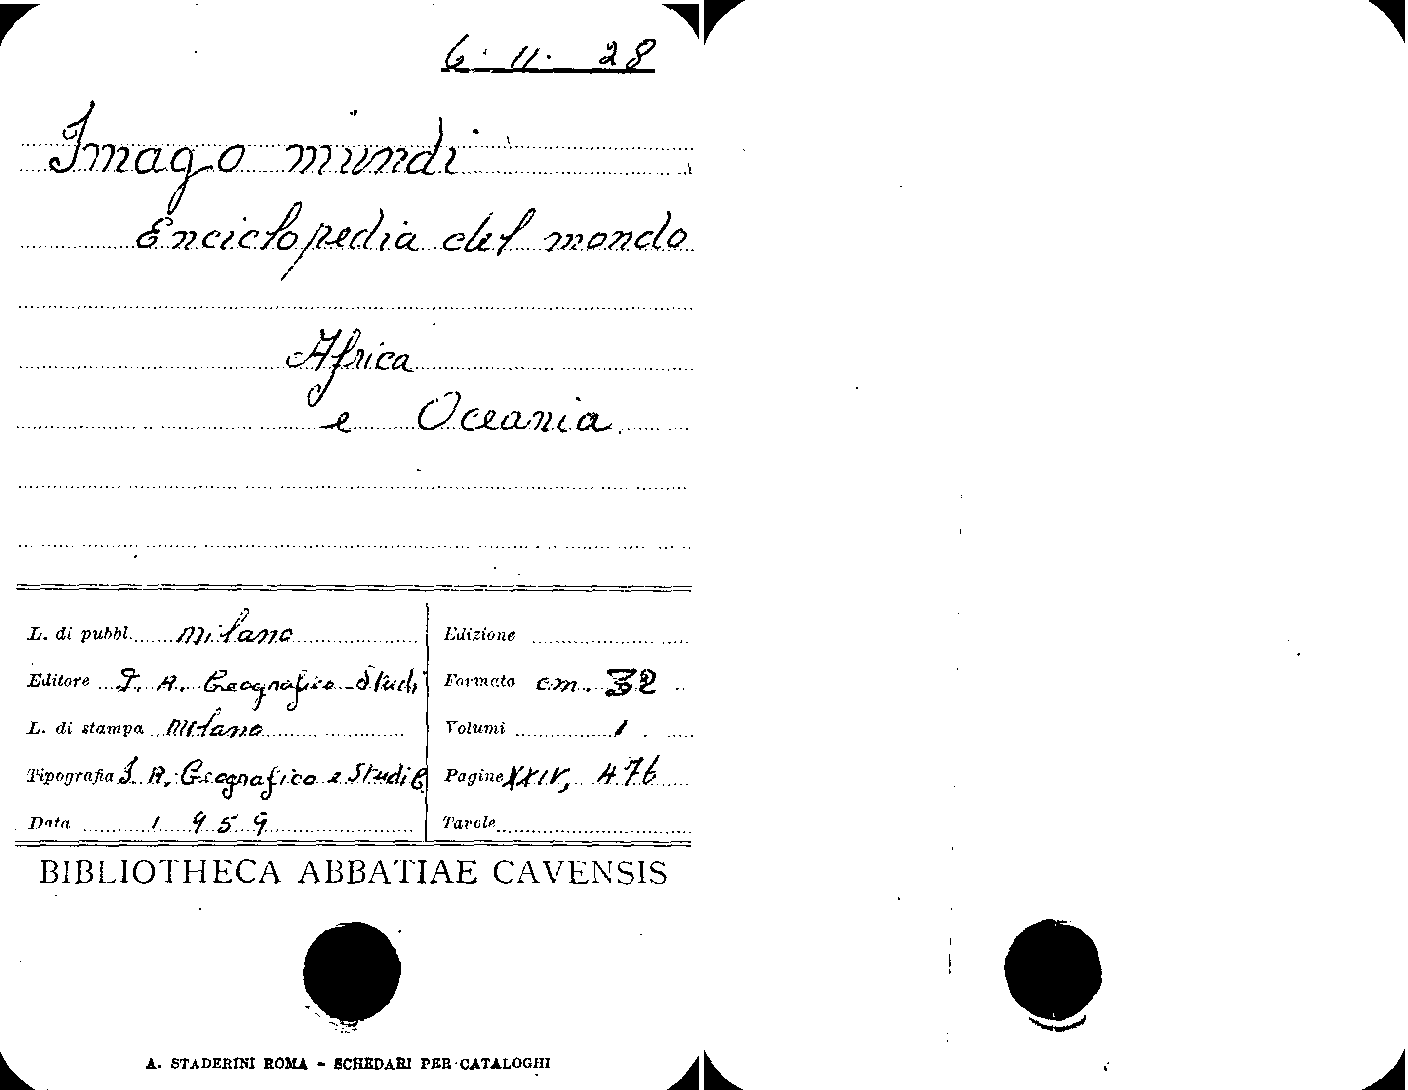 6. 11. 28
Imago mundi
Enciclopedia del mondo
Africa
e Oceania
L. di pubbl. Milano
Edizione
Editore I. A. Geografico Studi
Formato cm. 32
L. di stampa Milano
Volumi 1
Tipografia I. A. Geografico e Studi
Pagine XXIV, 476
Data 1959
Tavole
BIBLIOTHECA ABBATIAE CAVENSIS
A. STADERINI ROMA - SCHEDARI PER CATALOGHI